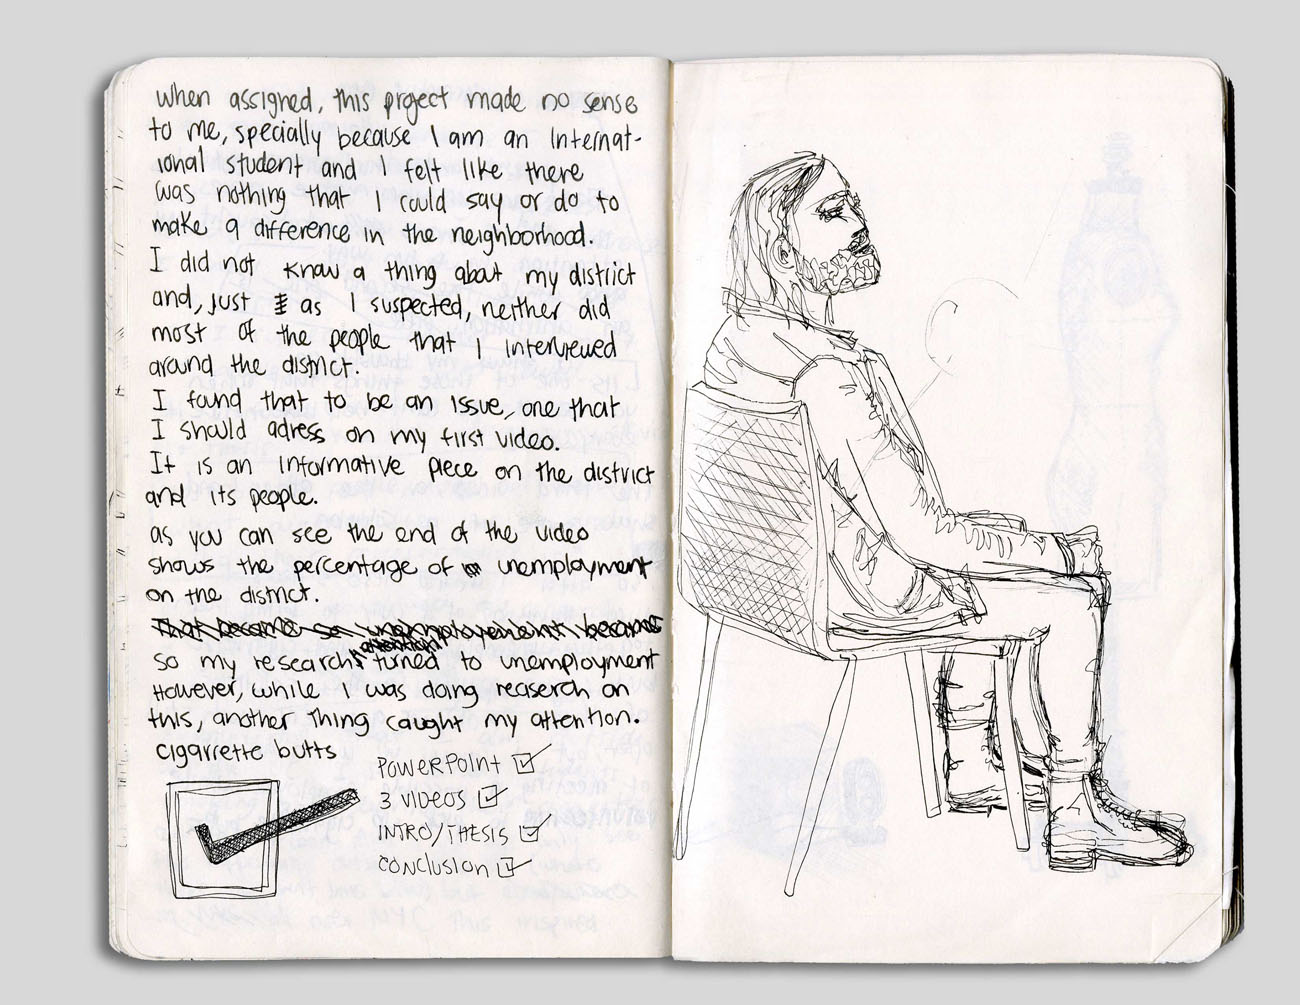 when assigned, this project made no sense
to me, specially because I am an Internat-
ional student and I felt like there
was nothing that I could say or do to
make a difference in the neighborhood.
I did not know a thing about my district
and, just as I suspected, neither did
most of the people that I interviewed
around the district.
I found that to be an issue, one that
I should adress on my first video.
It is an informative piece on the district
and its people.
as you can see the end of the video
shows the percentage of unemployment
on the district.
That became so unemployement became
attention
so my research turned to unemployment
However, while I was doing reaserch on
this, another thing caught my attention.
cigarrette butts
POWERPOINT ☑
3 VIDEOS ☑
INTRO/THESIS ☑
CONCLUSION ☑